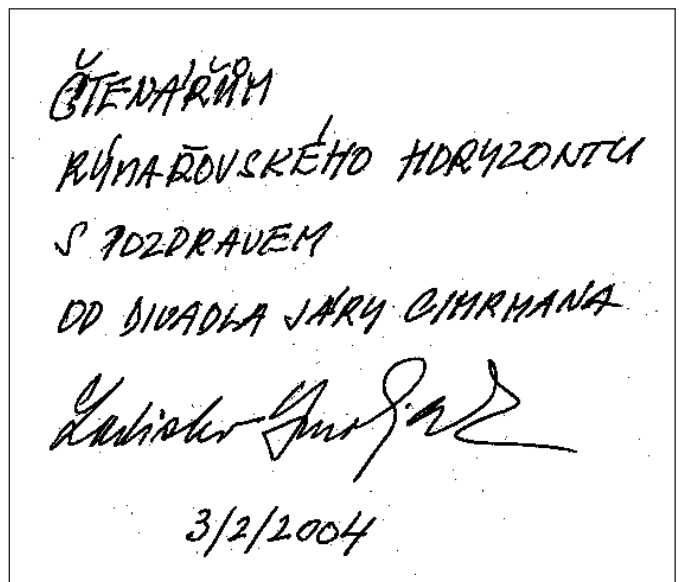 ČTENÁŘŮM
RÝMAŘOVSKÉHO HORYZONTU
S POZDRAVEM
OD DIVADLA JÁRY CIMRMANA
Ladislav Smoljak
3/2/2004